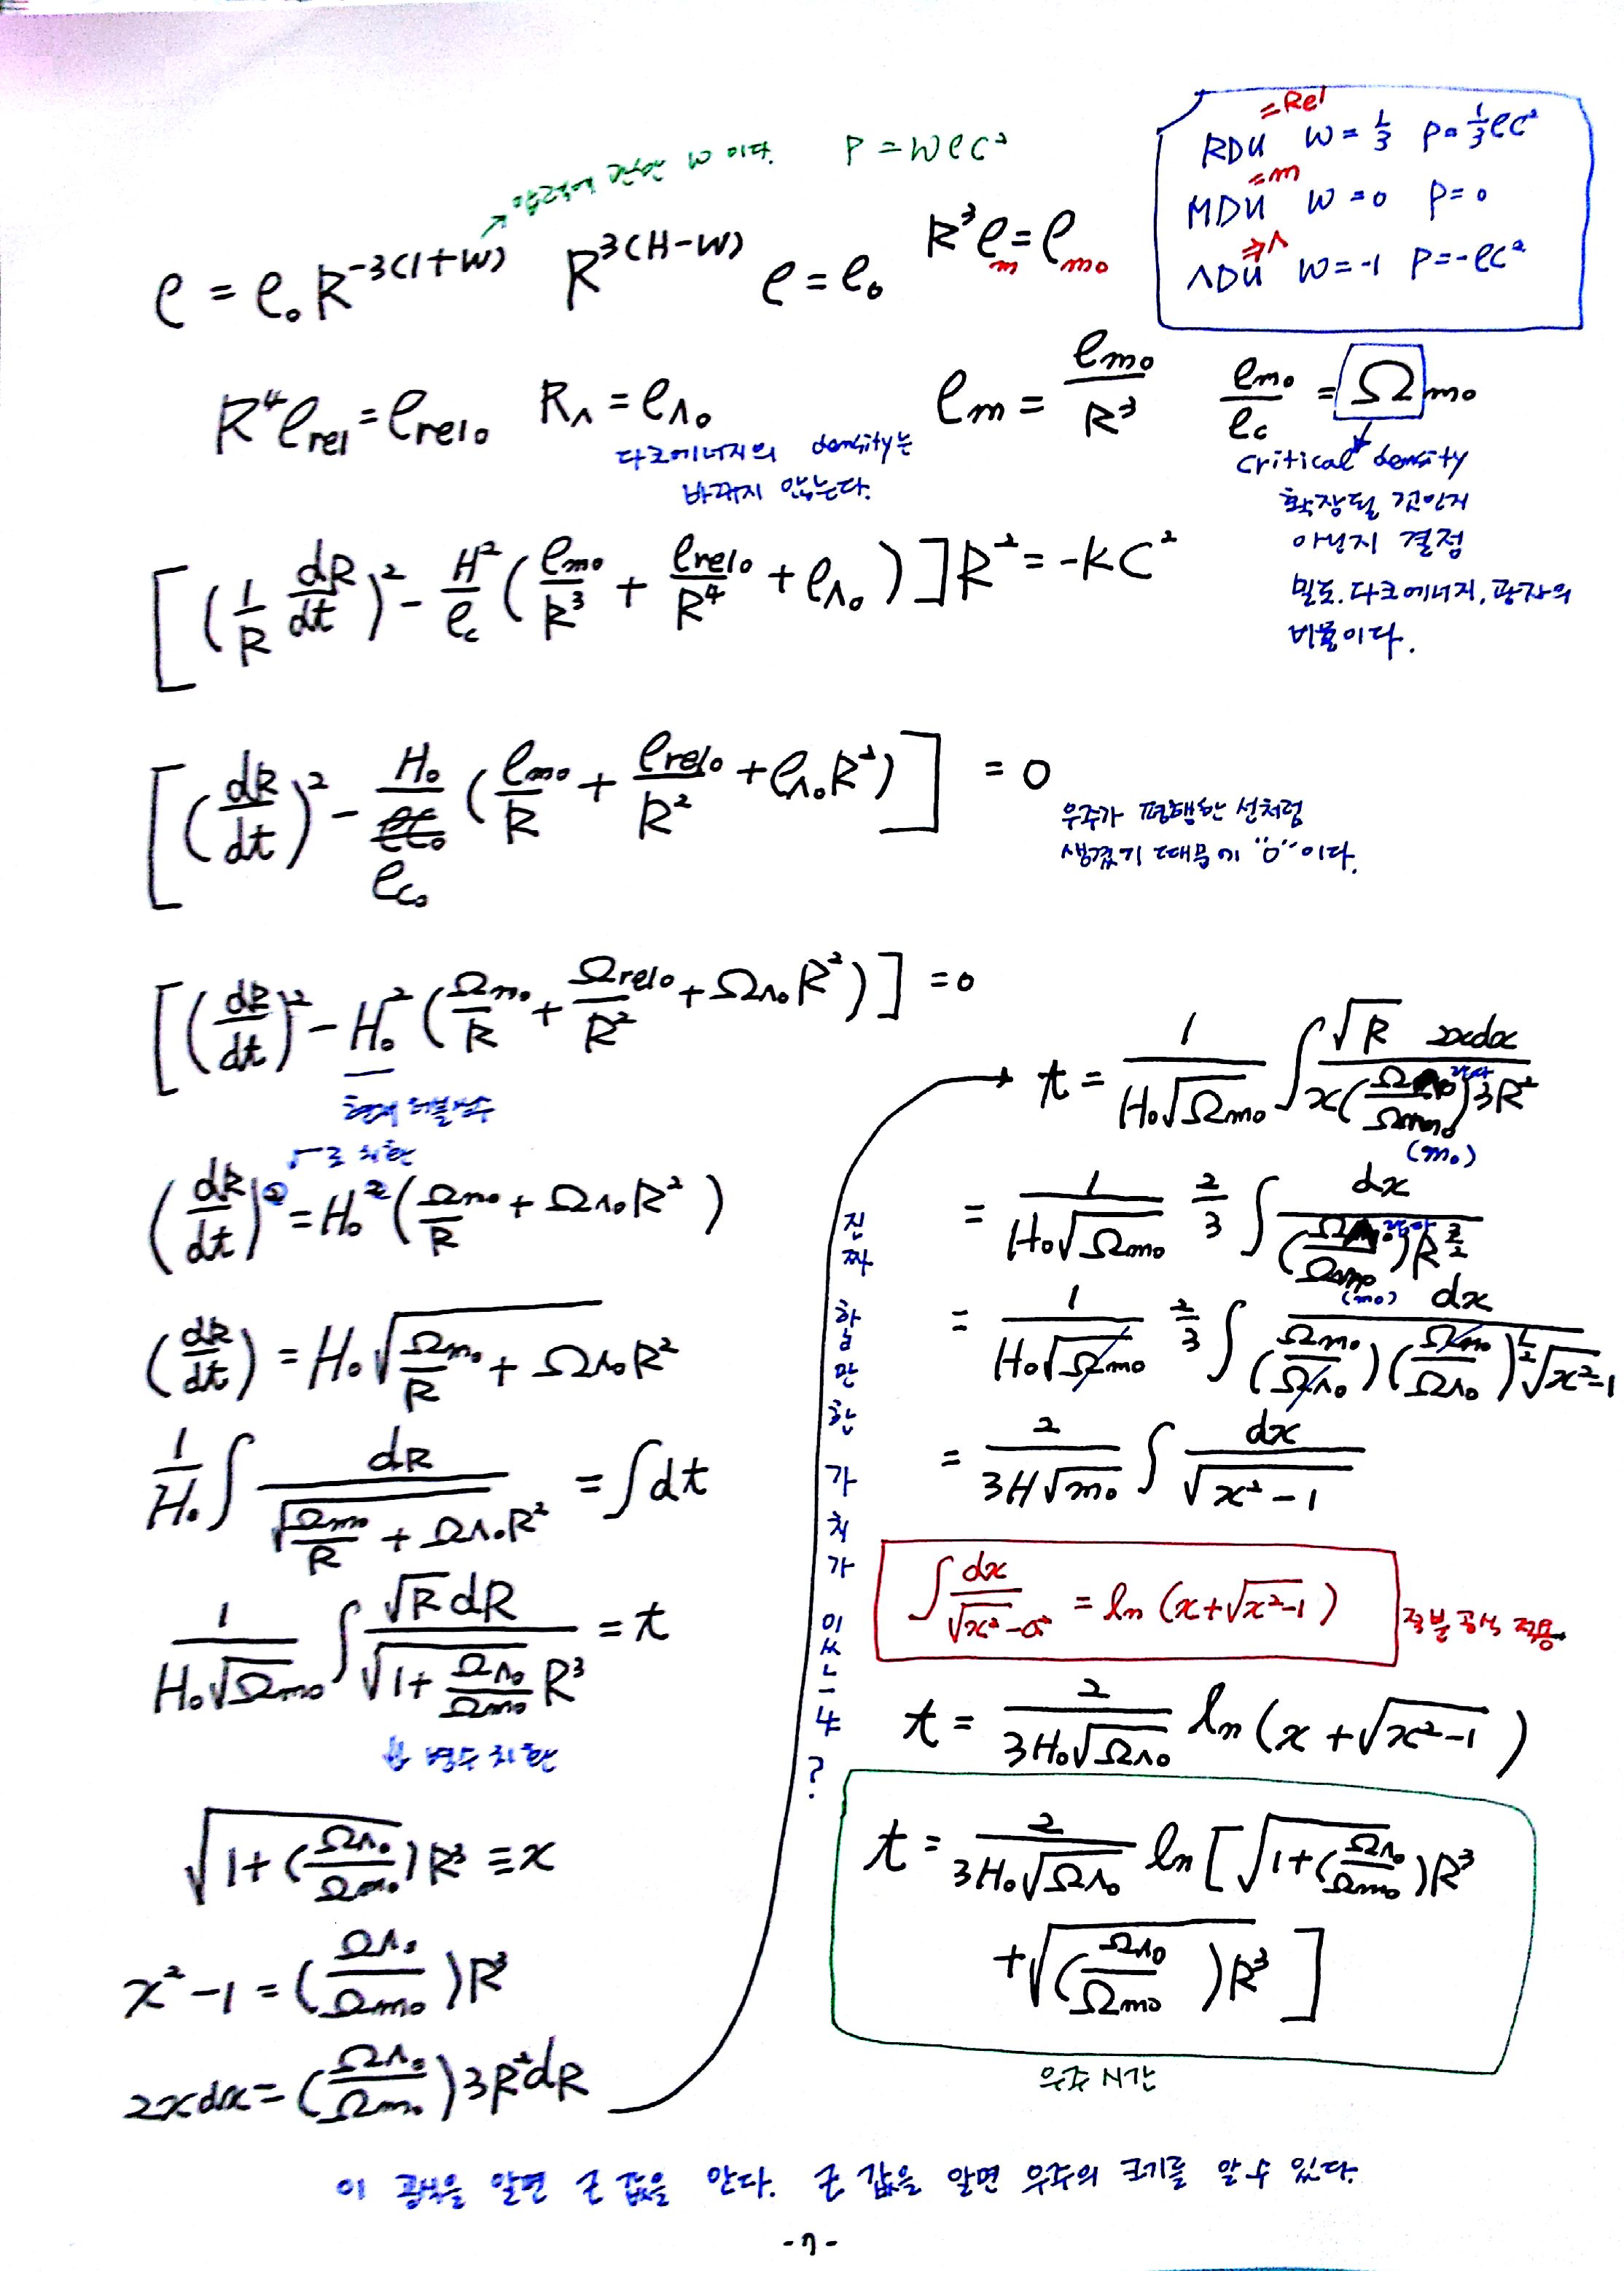 압력상수 w 이다. P = wρc²
RDU =Rel w = 1/3 P = 1/3 ρc²
MDU =m w = 0 P = 0
ΛDU ⇒Λ w = -1 P = -ρc²
ρ = ρ₀R^-3(1+w) R^3(H-w) ρ = ρ₀ R³ρm = ρm₀
R⁴ρrel = ρrel₀ RΛ = ρΛ₀ ρm = ρm₀/R³ ρm₀/ρc = Ωm₀
다크에너지의 density는
바뀌지 않는다.
critical density
확장될 것인지
아닌지 결정
밀도. 다크에너지, 광자의
비율이다.
[(1/R dR/dt)² - H²/ρc (ρm₀/R³ + ρrel₀/R⁴ + ρΛ₀)]R² = -kc²
[(dR/dt)² - H₀/ρc₀ (ρm₀/R + ρrel₀/R² + ρΛ₀R²)] = 0
우주가 평행한 선처럼
생겼기 때문에 "0"이다.
[(dR/dt)² - H₀² (Ωm₀/R + Ωrel₀/R² + ΩΛ₀R²)] = 0
현재 허블상수
√로 치환
(dR/dt)² = H₀² (Ωm₀/R + ΩΛ₀R²)
(dR/dt) = H₀√(Ωm₀/R + ΩΛ₀R²)
1/H₀ ∫ dR/√(Ωm₀/R + ΩΛ₀R²) = ∫dt
1/(H₀√Ωm₀) ∫ √R dR/√(1 + ΩΛ₀/Ωm₀ R³) = t
변수 치환
√(1+(ΩΛ₀/Ωm₀)R³) ≡ x
x² - 1 = (ΩΛ₀/Ωm₀)R³
2xdx = (ΩΛ₀/Ωm₀)3R²dR
진짜 학습만한 가치가 있쓰느냐?
t = 1/(H₀√Ωm₀) ∫ √R 2xdx / x(ΩΛ₀/Ωm₀)3R²
(m₀)
= 1/(H₀√Ωm₀) 2/3 ∫ dx/(ΩΛ₀/Ωm₀)R^3/2
(m₀)
= 1/(H₀√Ωm₀) 2/3 ∫ dx/(Ωm₀/ΩΛ₀)(Ωm₀/ΩΛ₀)^1/2 √x²-1
= 2/(3H√m₀) ∫ dx/√(x²-1)
∫ dx/√(x²-a²) = ln (x+√x²-1) 적분 공식 적용
t = 2/(3H₀√ΩΛ₀) ln (x+√x²-1)
t = 2/(3H₀√ΩΛ₀) ln [√(1+(ΩΛ₀/Ωm₀)R³)
+√((ΩΛ₀/Ωm₀)R³)]
우주 시간
이 값을 알면 R 값을 안다. R 값을 알면 우주의 크기를 알 수 있다.
-7-